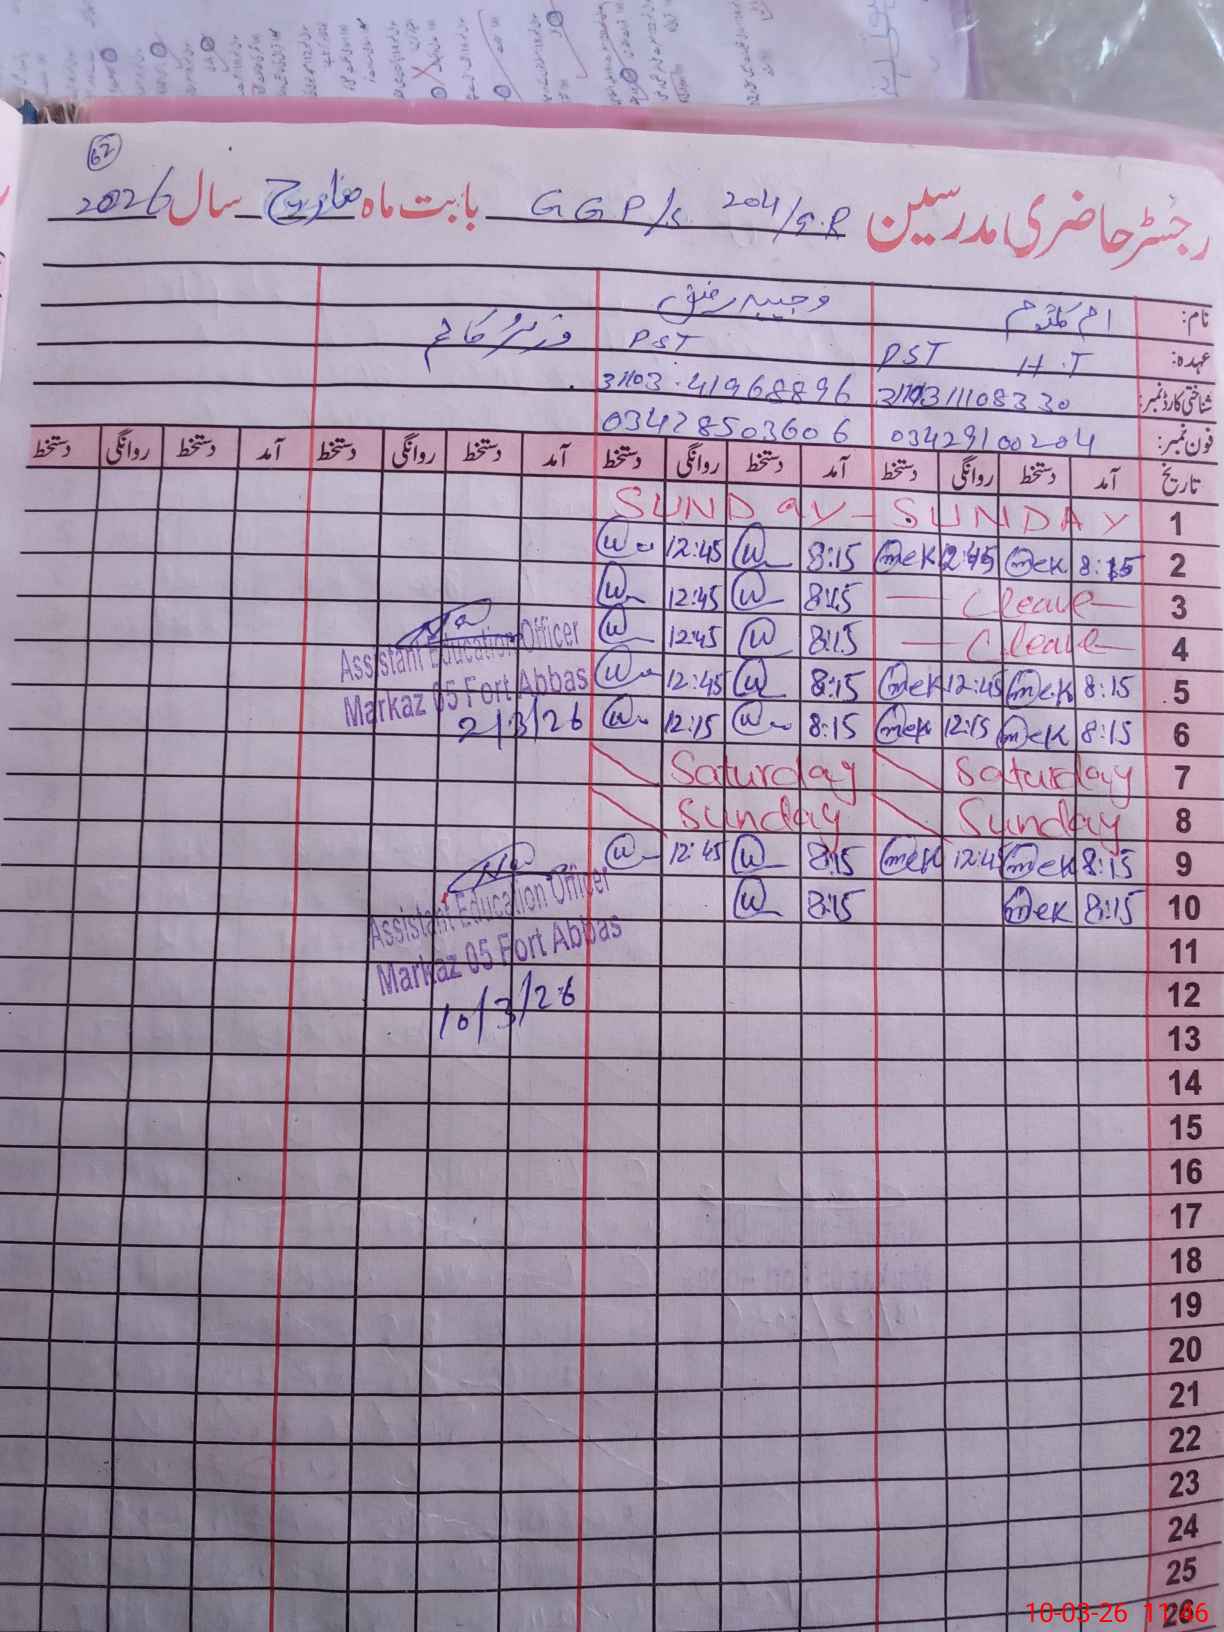 62
رجسٹر حاضری مدرسین 204/9.R GGP/s بابت ماہ مارچ سال 2026
نام: ام کلثوم وجیہہ رفیق
عہدہ: PST H.T PST وزیٹر کالم
شناختی کارڈ نمبر: 31103 41968896
فون نمبر: 03429100204 03428503606
تاریخ آمد دستخط روانگی دستخط آمد دستخط روانگی دستخط آمد دستخط روانگی دستخط آمد دستخط روانگی دستخط
1 SUNDAY SUNDAY
2 8:15 mek 12:45 mek 8:15 W 12:45 W
3 C leave 8:15 W 12:45 W
4 C leave 8:15 W 12:45 W
5 8:15 mek 12:45 mek 8:15 W 12:45 W
6 8:15 mek 12:15 mek 8:15 W 12:15 W
Assistant Education Officer
Markaz 05 Fort Abbas
2/3/26
7 Saturday Saturday
8 Sunday Sunday
9 8:15 mek 12:45 mek 8:15 W 12:45 W
10 8:15 mek 8:15 W
Assistant Education Officer
Markaz 05 Fort Abbas
10/3/26
11
12
13
14
15
16
17
18
19
20
21
22
23
24
25
26
10-03-26 11:46